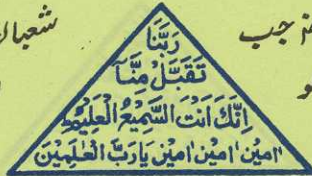 شعبان
رَبَّنَا
تَقَبَّلْ مِنَّا
اِنَّكَ اَنْتَ السَّمِيْعُ الْعَلِيْمُ
اٰمِيْن اٰمِيْن اٰمِيْن يَارَبَّ الْعٰلَمِيْنَ